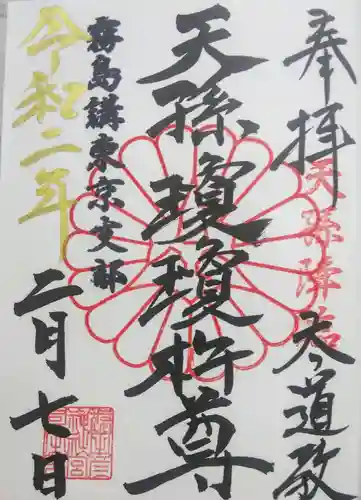 奉拝
天孫降臨
天道教
天孫瓊瓊杵尊
霧島講東京支部
令和二年
二月七日